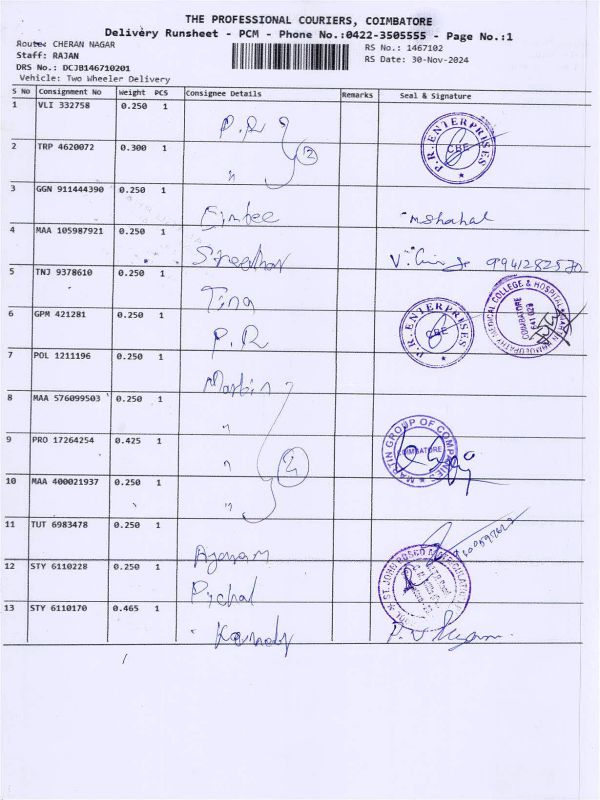 THE PROFESSIONAL COURIERS, COIMBATORE
Delivery Runsheet - PCM - Phone No.:0422-3505555 - Page No.:1
Route: CHERAN NAGAR
RS No.: 1467102
Staff: RAJAN
RS Date: 30-Nov-2024
DRS No.: DCJB146710201
Vehicle: Two Wheeler Delivery
S No Consignment No Weight PCS Consignee Details Remarks Seal & Signature
1 VLI 332758 0.250 1 P.R P.R.ENTERPRISES CBE
2 TRP 4620072 0.300 1 " 2
3 GGN 911444390 0.250 1
4 MAA 105987921 0.250 1 9941282570
5 TNJ 9378610 0.250 1 Tina MEDICAL COLLEGE & HOSPITAL COIMBATORE
6 GPM 421281 0.250 1 P.R P.R.ENTERPRISES CBE
7 POL 1211196 0.250 1 Martin
8 MAA 576099503 0.250 1 "
9 PRO 17264254 0.425 1 " MARTIN GROUP OF COMPANIES COIMBATORE
10 MAA 400021937 0.250 1 "
11 TUT 6983478 0.250 1
12 STY 6110228 0.250 1 ST. JOHN BOSCO
13 STY 6110170 0.465 1